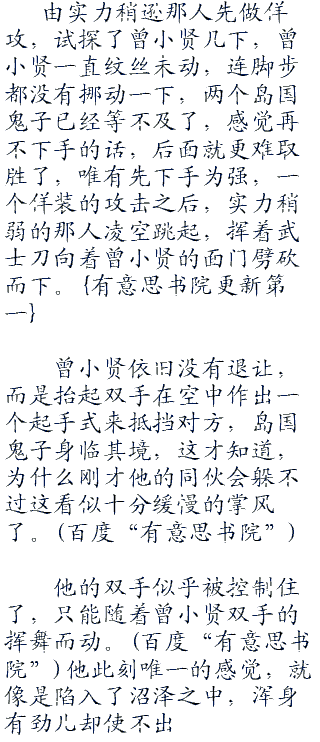 由实力稍逊那人先做佯
攻，试探了曾小贤几下，曾
小贤一直纹丝未动，连脚步
都没有挪动一下，两个岛国
鬼子已经等不及了，感觉再
不下手的话，后面就更难取
胜了，唯有先下手为强，一
个佯装的攻击之后，实力稍
弱的那人凌空跳起，挥着武
士刀向着曾小贤的面门劈砍
而下。{有意思书院更新第
一}
曾小贤依旧没有退让，
而是抬起双手在空中作出一
个起手式来抵挡对方，岛国
鬼子身临其境，这才知道，
为什么刚才他的同伙会躲不
过这看似十分缓慢的掌风
了。(百度“有意思书院”)
他的双手似乎被控制住
了，只能随着曾小贤双手的
挥舞而动。(百度“有意思书
院”)他此刻唯一的感觉，就
像是陷入了沼泽之中，浑身
有劲儿却使不出